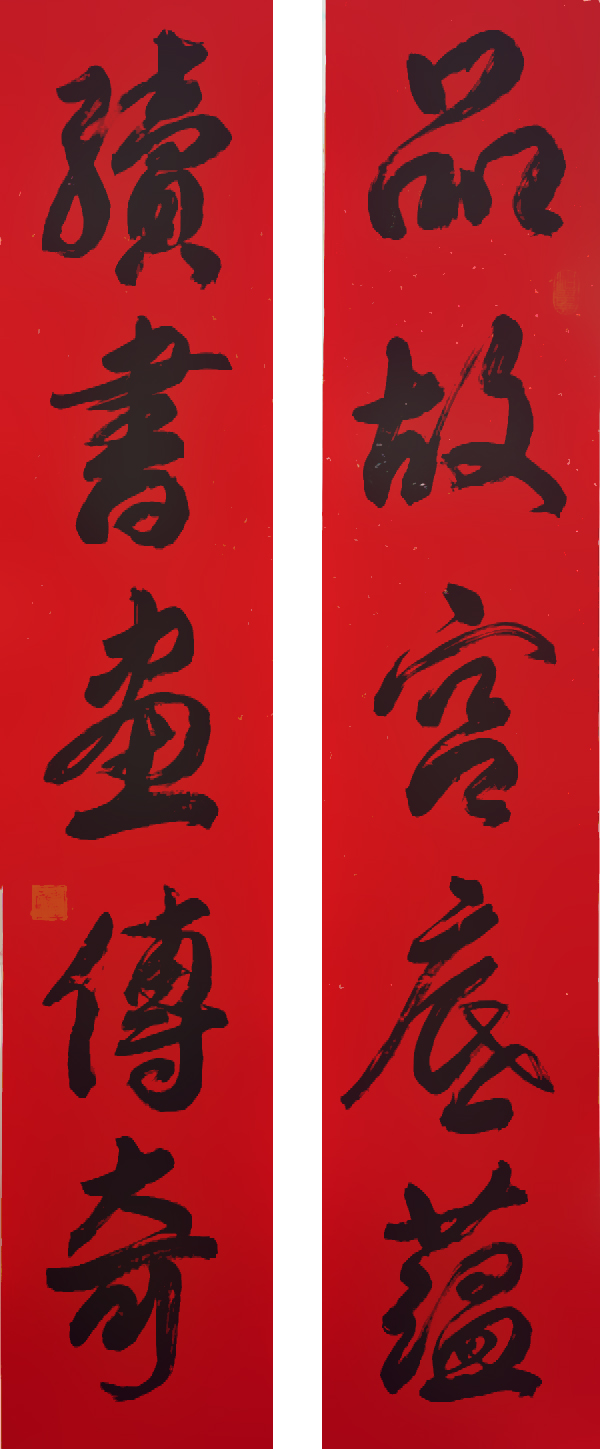 品故宮底蘊
續書畫傳奇